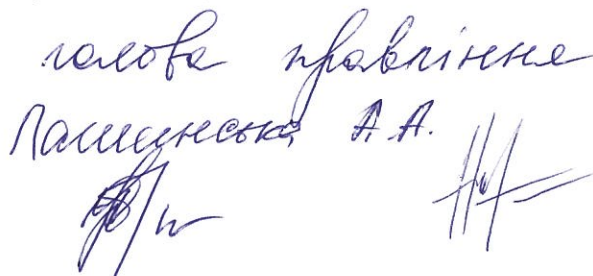 голова правління
Лашинська А. А.